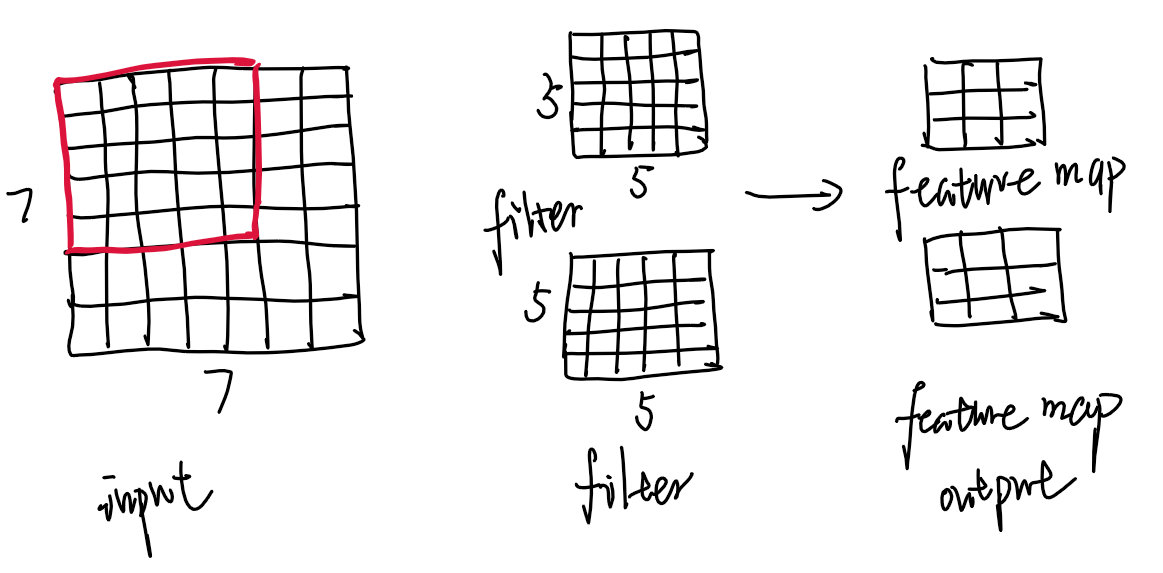 7
7
input
5
5
filter
5
5
filter
feature map
feature map
output